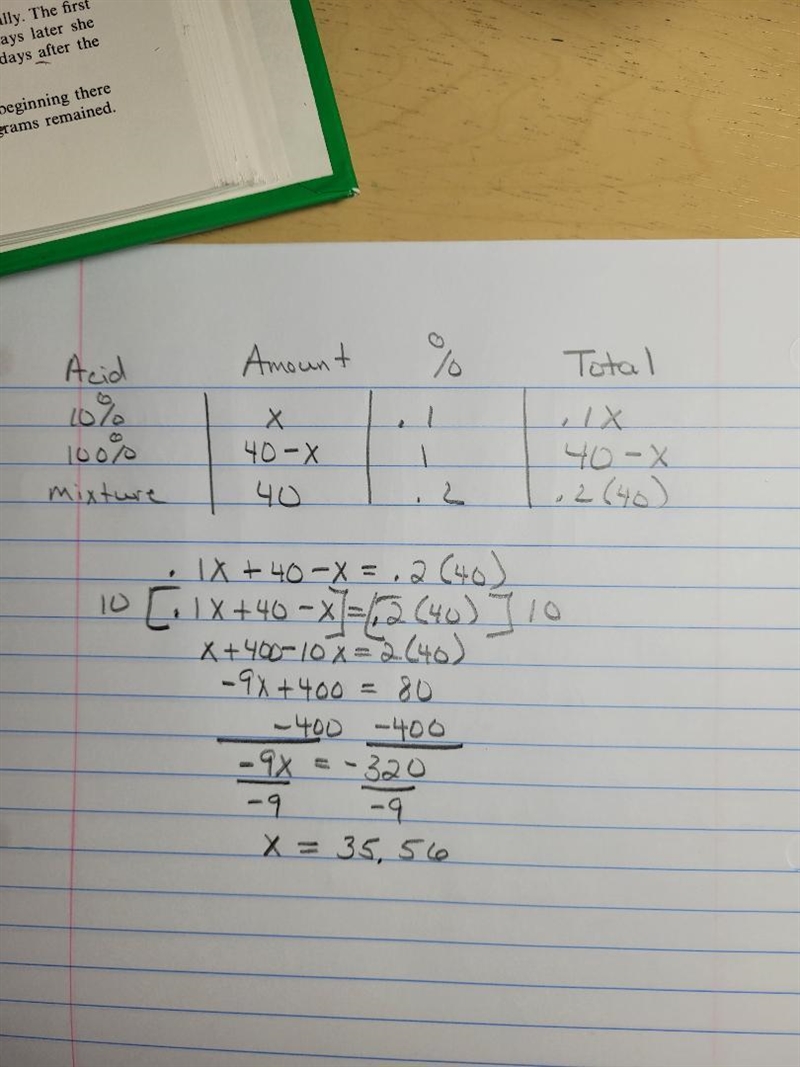 ally. The first
ays later she
days after the
beginning there
grams remained.
Acid Amount % Total
10% x .1 .1x
100% 40-x 1 40-x
mixture 40 .2 .2(40)
.1x+40-x=.2(40)
10[.1x+40-x]=[.2(40)]10
x+400-10x=2(40)
-9x+400=80
-400 -400
-9x=-320
-9 -9
x=35.56